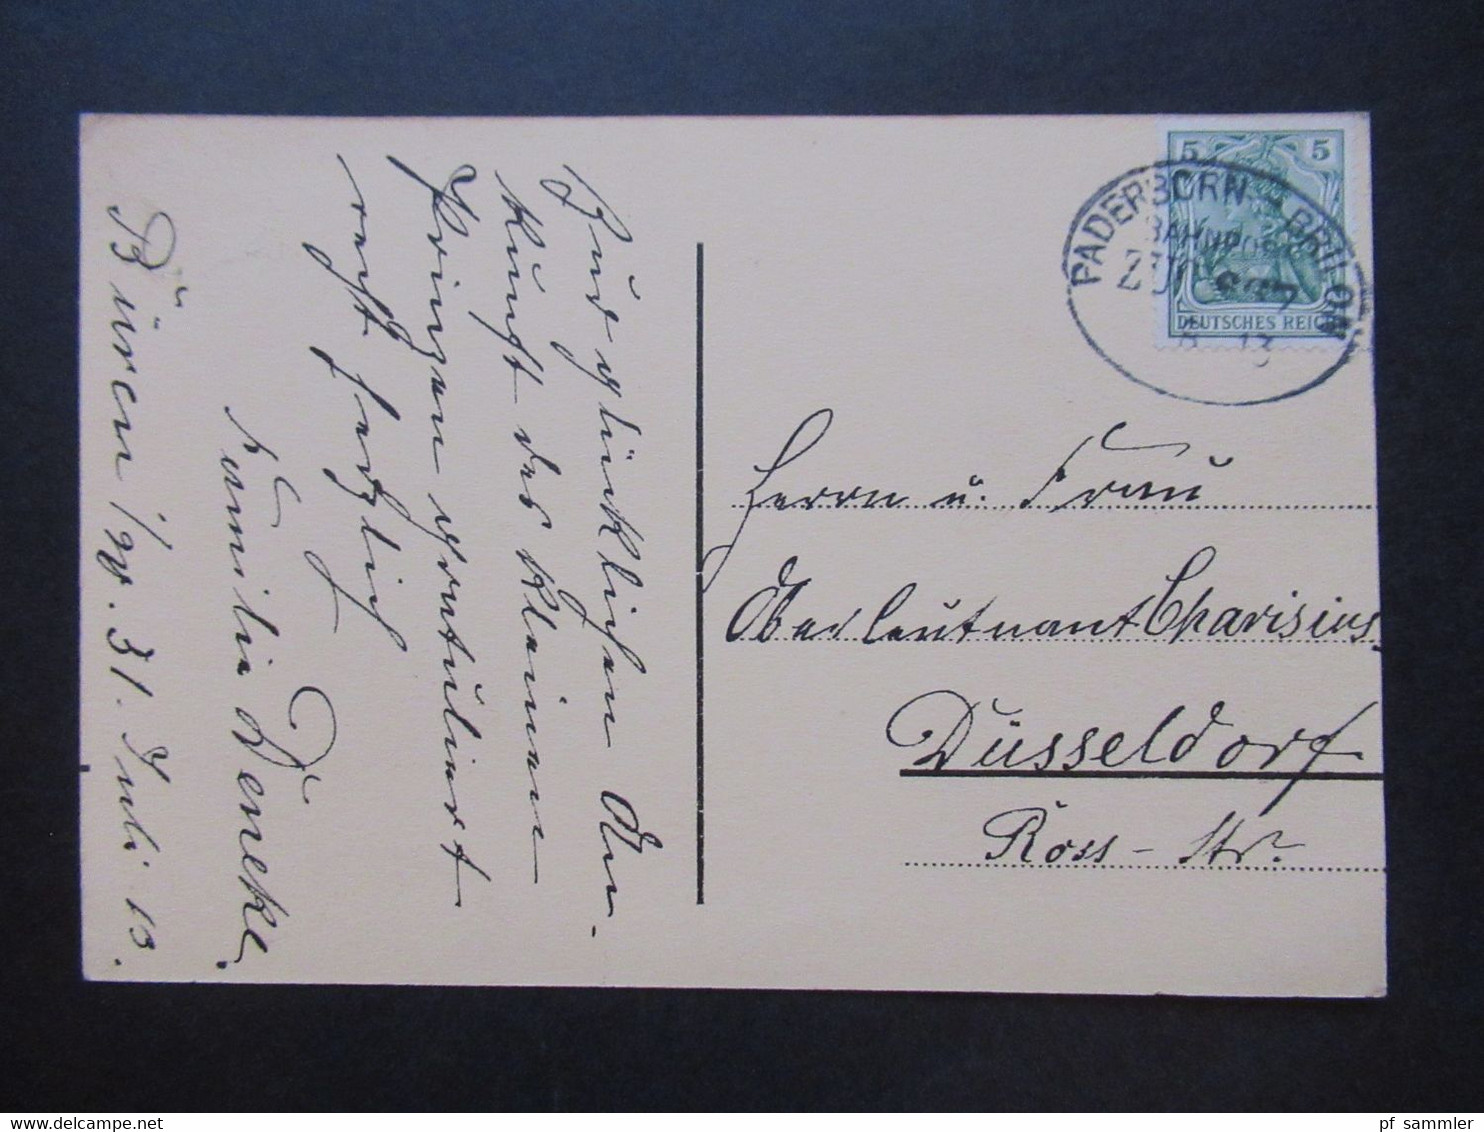 5 5
DEUTSCHES REICH
PADERBORN - BRILON
BAHNPOST
ZUG 
13
Herrn u. Frau
Oberleutnant Charisius
Düsseldorf
Ross-Str.
Zur glücklichen An-
kunft des kleinen
Prinzen gratuliert
recht herzlich
Familie Beneke.
Büren i/W. 31. Juli 13.
pf sammler